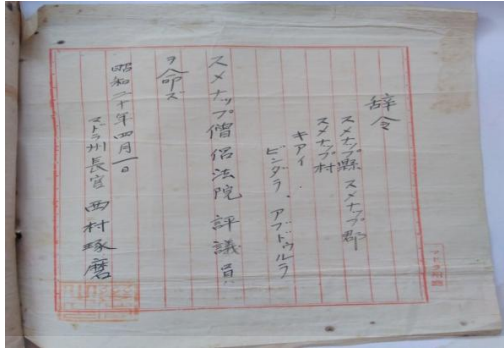 辞令
スメナップ縣スメナップ郡
スメナップ村
キアイ.
ビンダラ.アブドゥルラ
スメナップ僧侶法院評議員
ヲ命ズ
昭和二十年四月一日
マドラ州長官 西村琢磨